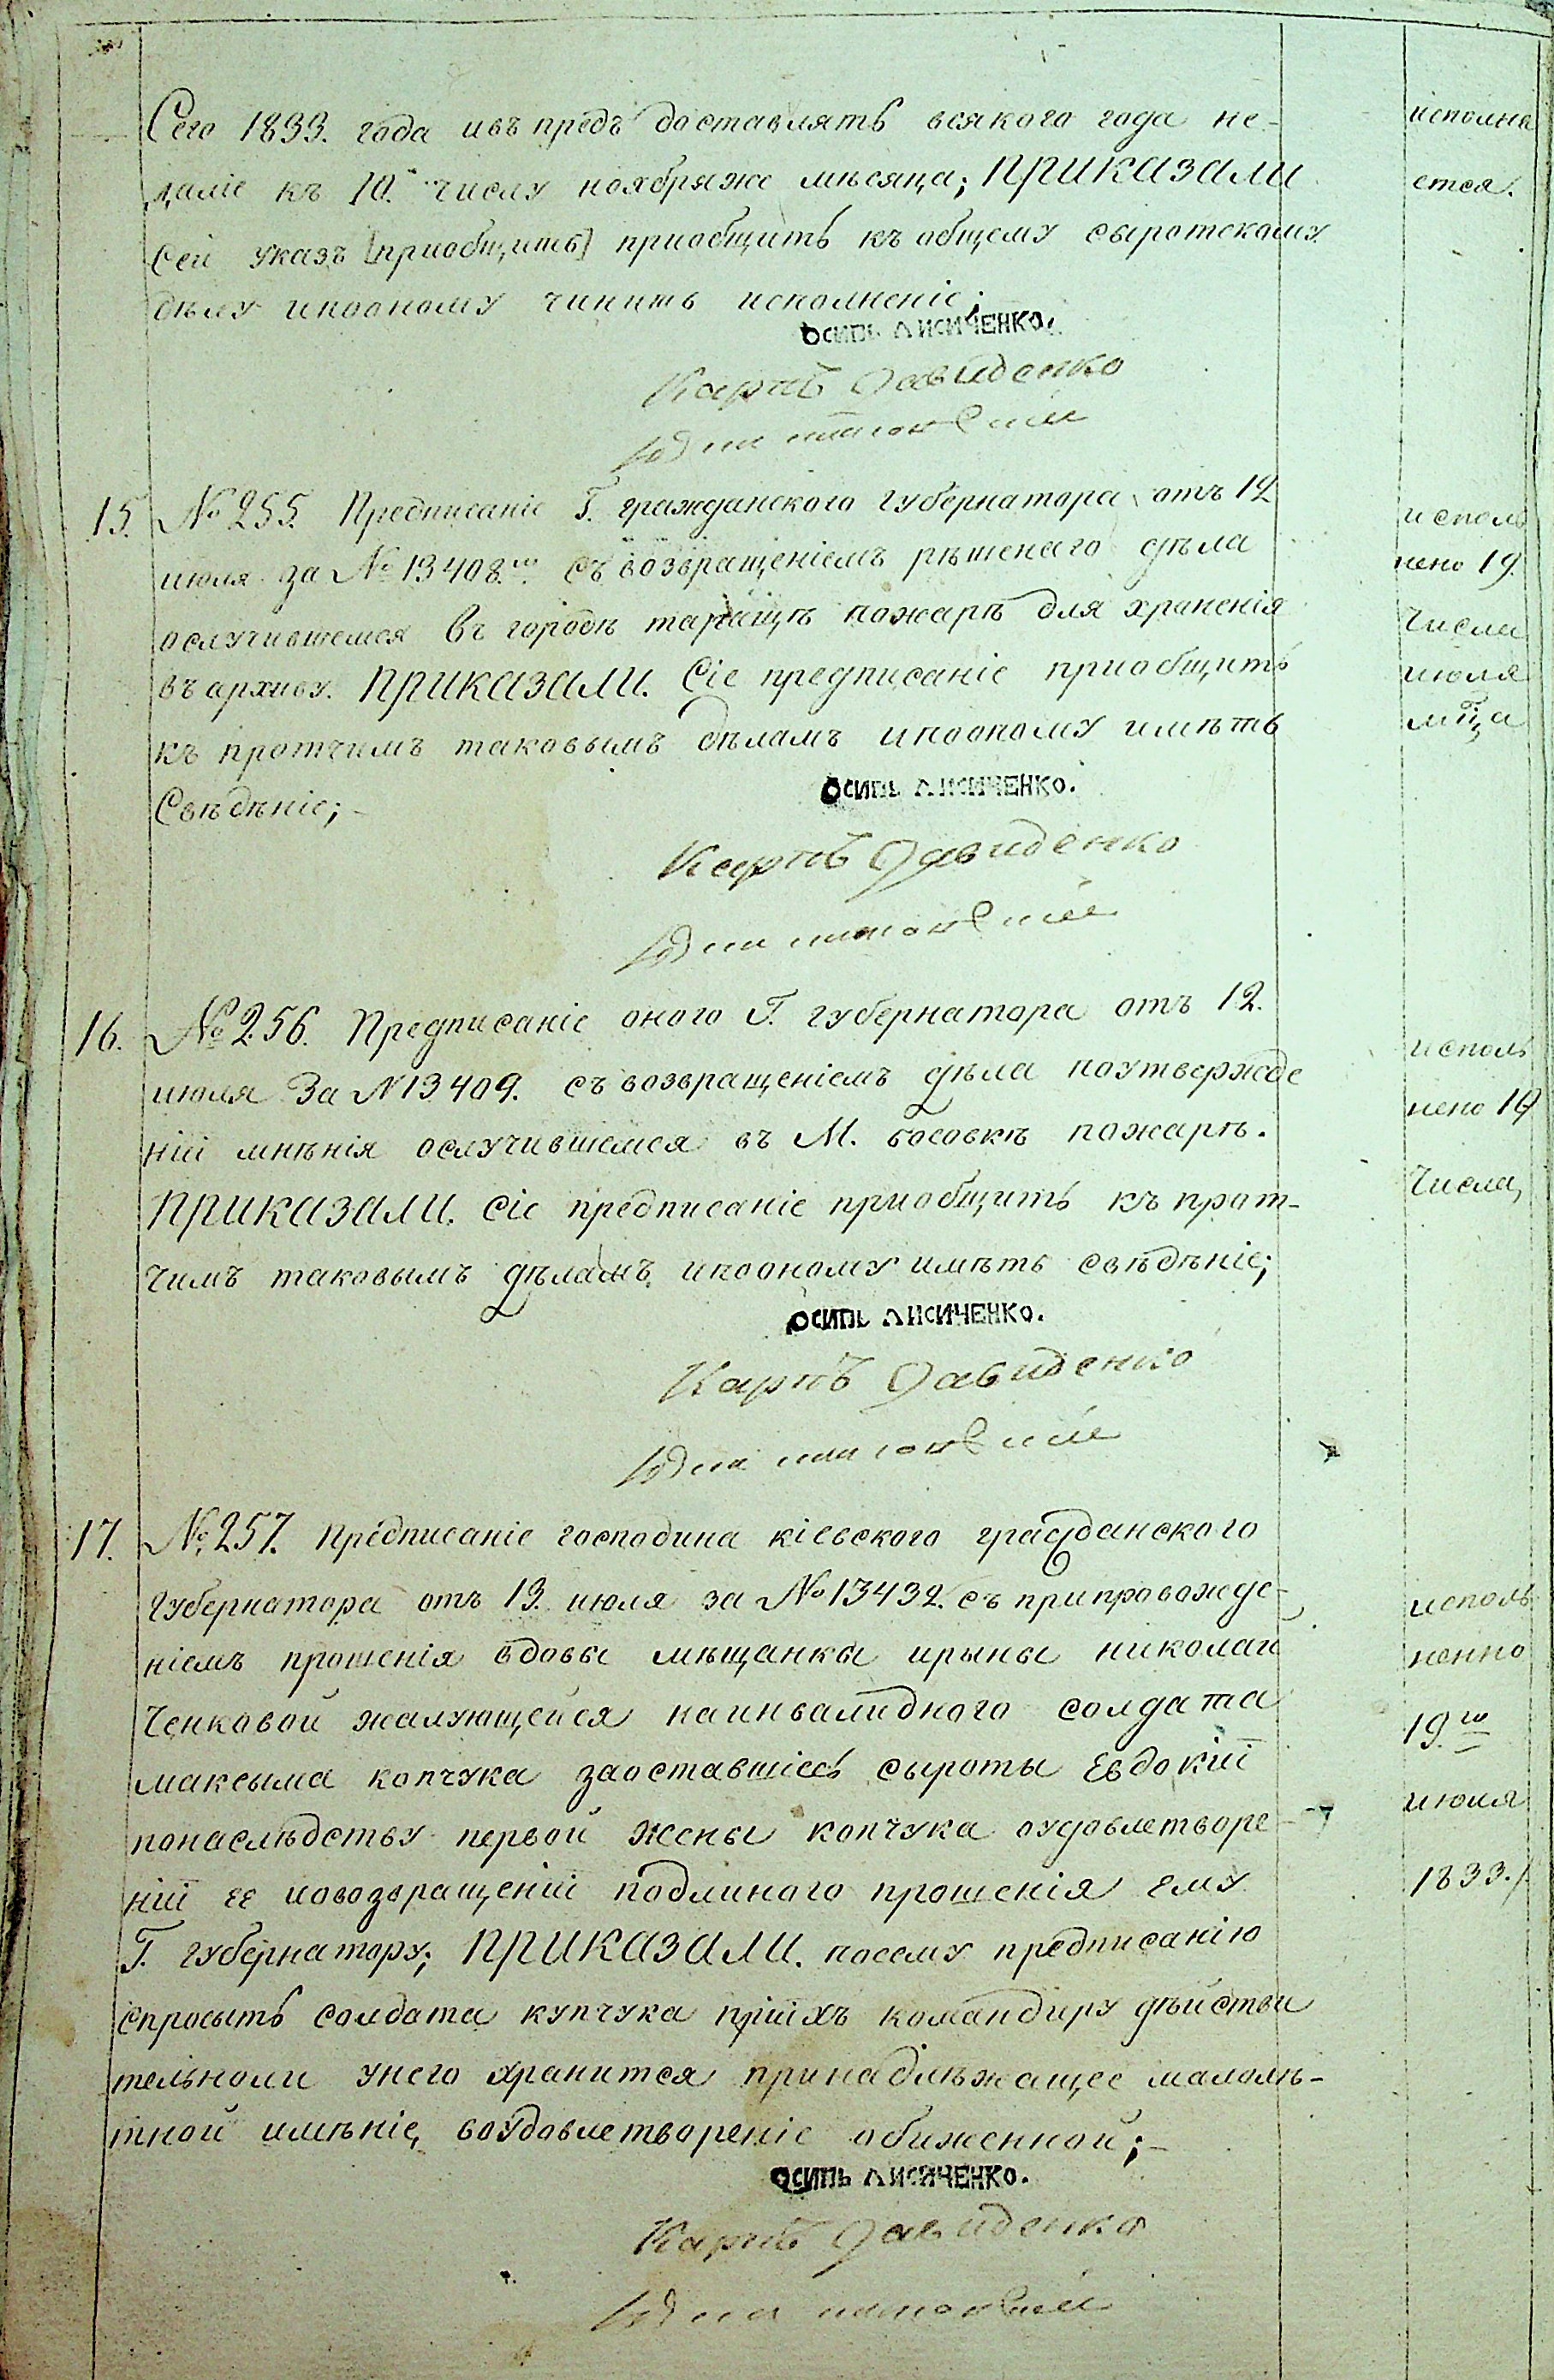 Сего 1833. года ивъ предъ доставлять всякого года не-
даліе къ 10. числу ноябряже мѣсяца; приказали
Сей указъ [приобщить] приобщить къ общему сыротскому
дѣлу ипооному чинить исполненіе;
исполня
ется.
Осипъ Лисиченко.
Карпъ Давиденко
15. № 255. Предписаніе Г. гражданского губернатора отъ 12
июля за № 13408.мъ съ возвращеніемъ рѣшенаго дѣла
ослучившемся въ городѣ таращѣ пожарѣ для храненія
въ архиву. приказали. Сіе предписаніе приобщить
къ протчимъ таковымъ дѣламъ ипооному имѣть
Свѣдѣніе;-
исполь
нено 19.
Числа
июля
мца
Осипъ Лисиченко.
Карпъ Давиденко
16. № 256. Предписаніе оного Г. губернатора отъ 12.
июля За N 13409. съ возвращеніемъ дѣла поутвержде
ніи мнѣнія ослучившемся въ М. босовкѣ пожарѣ.
приказали. сіе предписаніе приобщить къ прот-
чимъ таковымъ дѣламъ ипооному имѣть свѣдѣніе;
исполь
нено 19
Числа,
Осипъ Лисиченко.
Карпъ Давиденко
17. № 257. Предписаніе господина кіевского гражданского
Губернатора отъ 13. июля за № 13432. съ припровожде-
ніемъ прошенія вдовы мѣщанки ирыны николай
Ченковой жалующейся наинвалидного солдата
максыма копчука заоставшіесь сыроты Евдокіи
понаслѣдству первой жены копчука оудовлетворе-
ніи ее иовозвращеніи подлиного прошенія ему
Г. губернатору; приказали. посему предписанію
спросыть солдата купчука приихъ командиру дѣйстви
тельноли унего хранится принадлѣжащее малолѣ-
тной имѣніе, воудовлетвореніе обиженной;-
исполь
ненно
19.го
июля
1833.
Осипъ Лисиченко.
Карпъ Давиденко